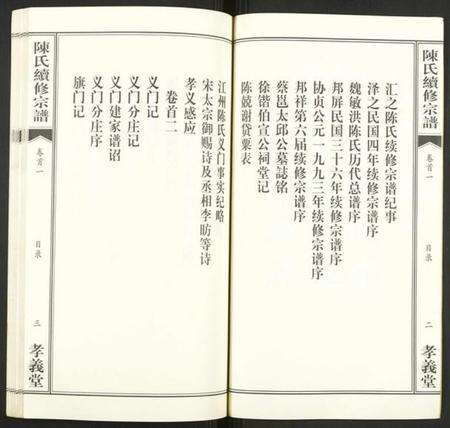 陳氏續修宗譜
卷首一
目录
二
孝義堂
汇之陈氏续修宗谱纪事
泽之民国四年续修宗谱序
魏敏洪陈氏历代总谱序
邦屏民国三十六年续修宗谱序
协贞公元一九九三年续修宗谱序
邦祥第六届续修宗谱序
蔡邕太邱公墓誌铭
徐锴伯宣公祠堂记
陈兢谢贷粟表
江州陈氏义门事实纪略
宋太宗御赐诗及丞相李昉等诗
孝义感应
卷首二
义门记
义门分庄记
义门建家谱诏
义门分庄序
旗门记
陳氏續修宗譜
卷首一
目录
三
孝義堂